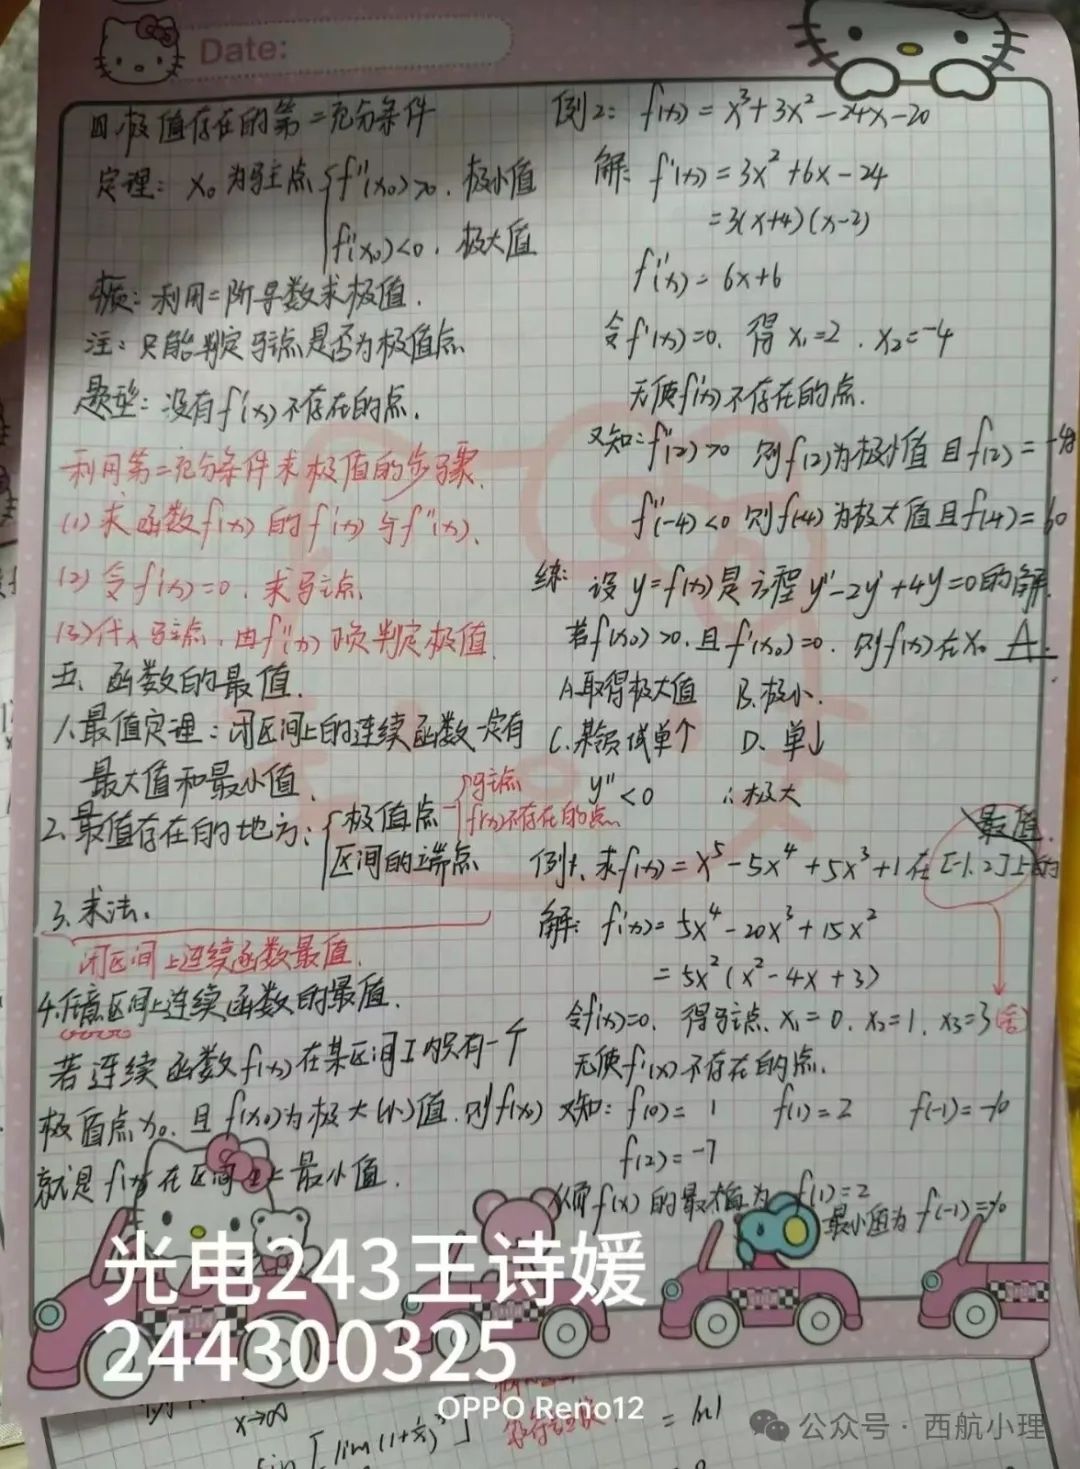 Date:
四.极值存在的第二充分条件
定理: x₀为驻点 { f''(x₀)>0. 极小值
f''(x₀)<0. 极大值
实质: 利用二阶导数求极值.
注: 只能判定驻点是否为极值点
题型: 没有f'(x)不存在的点.
利用第二充分条件求极值的步骤.
(1) 求函数f(x)的f'(x)与f''(x).
(2) 令f'(x)=0. 求驻点.
(3) 代入驻点, 由f''(x) 判定极值
五. 函数的最值.
1.最值定理: 闭区间上的连续函数一定有
最大值和最小值.
2.最值存在的地方: { 极值点 { 驻点
f'(x)不存在的点
区间的端点
3.求法.
闭区间上连续函数最值.
4.任意区间上连续函数的最值.
若连续函数f(x)在某区间I内只有一个
极值点x₀. 且f(x₀)为极大(小)值. 则f(x₀)
就是f(x)在区间I上最小值.
例2: f(x)=x³+3x²-24x-20
解: f'(x)=3x²+6x-24
=3(x+4)(x-2)
f''(x)=6x+6
令f'(x)=0. 得x₁=2. x₂=-4
无使f'(x)不存在的点.
又知: f''(2)>0 则f(2)为极小值且f(2)=-48
f''(-4)<0 则f(-4)为极大值且f(-4)=60
练: 设y=f(x)是方程y''-2y'+4y=0的解.
若f(x₀)>0. 且f'(x₀)=0. 则f(x)在x₀ A.
A.取得极大值 B.极小.
C.某领域单个 D.单↓
y''<0 ∴极大
例1. 求f(x)=x⁵-5x⁴+5x³+1在[-1,2]上的
最值.
解: f'(x)=5x⁴-20x³+15x²
=5x²(x²-4x+3)
令f'(x)=0. 得驻点. x₁=0. x₂=1. x₃=3(舍)
无使f'(x)不存在的点.
又知: f(0)=1 f(1)=2 f(-1)=-10
f(2)=-7
f(x)的最大值为 f(1)=2
最小值为 f(-1)=-10
光电243王诗媛
244300325
OPPO Reno12
x→∞
lim(1+
公众号·西航小理